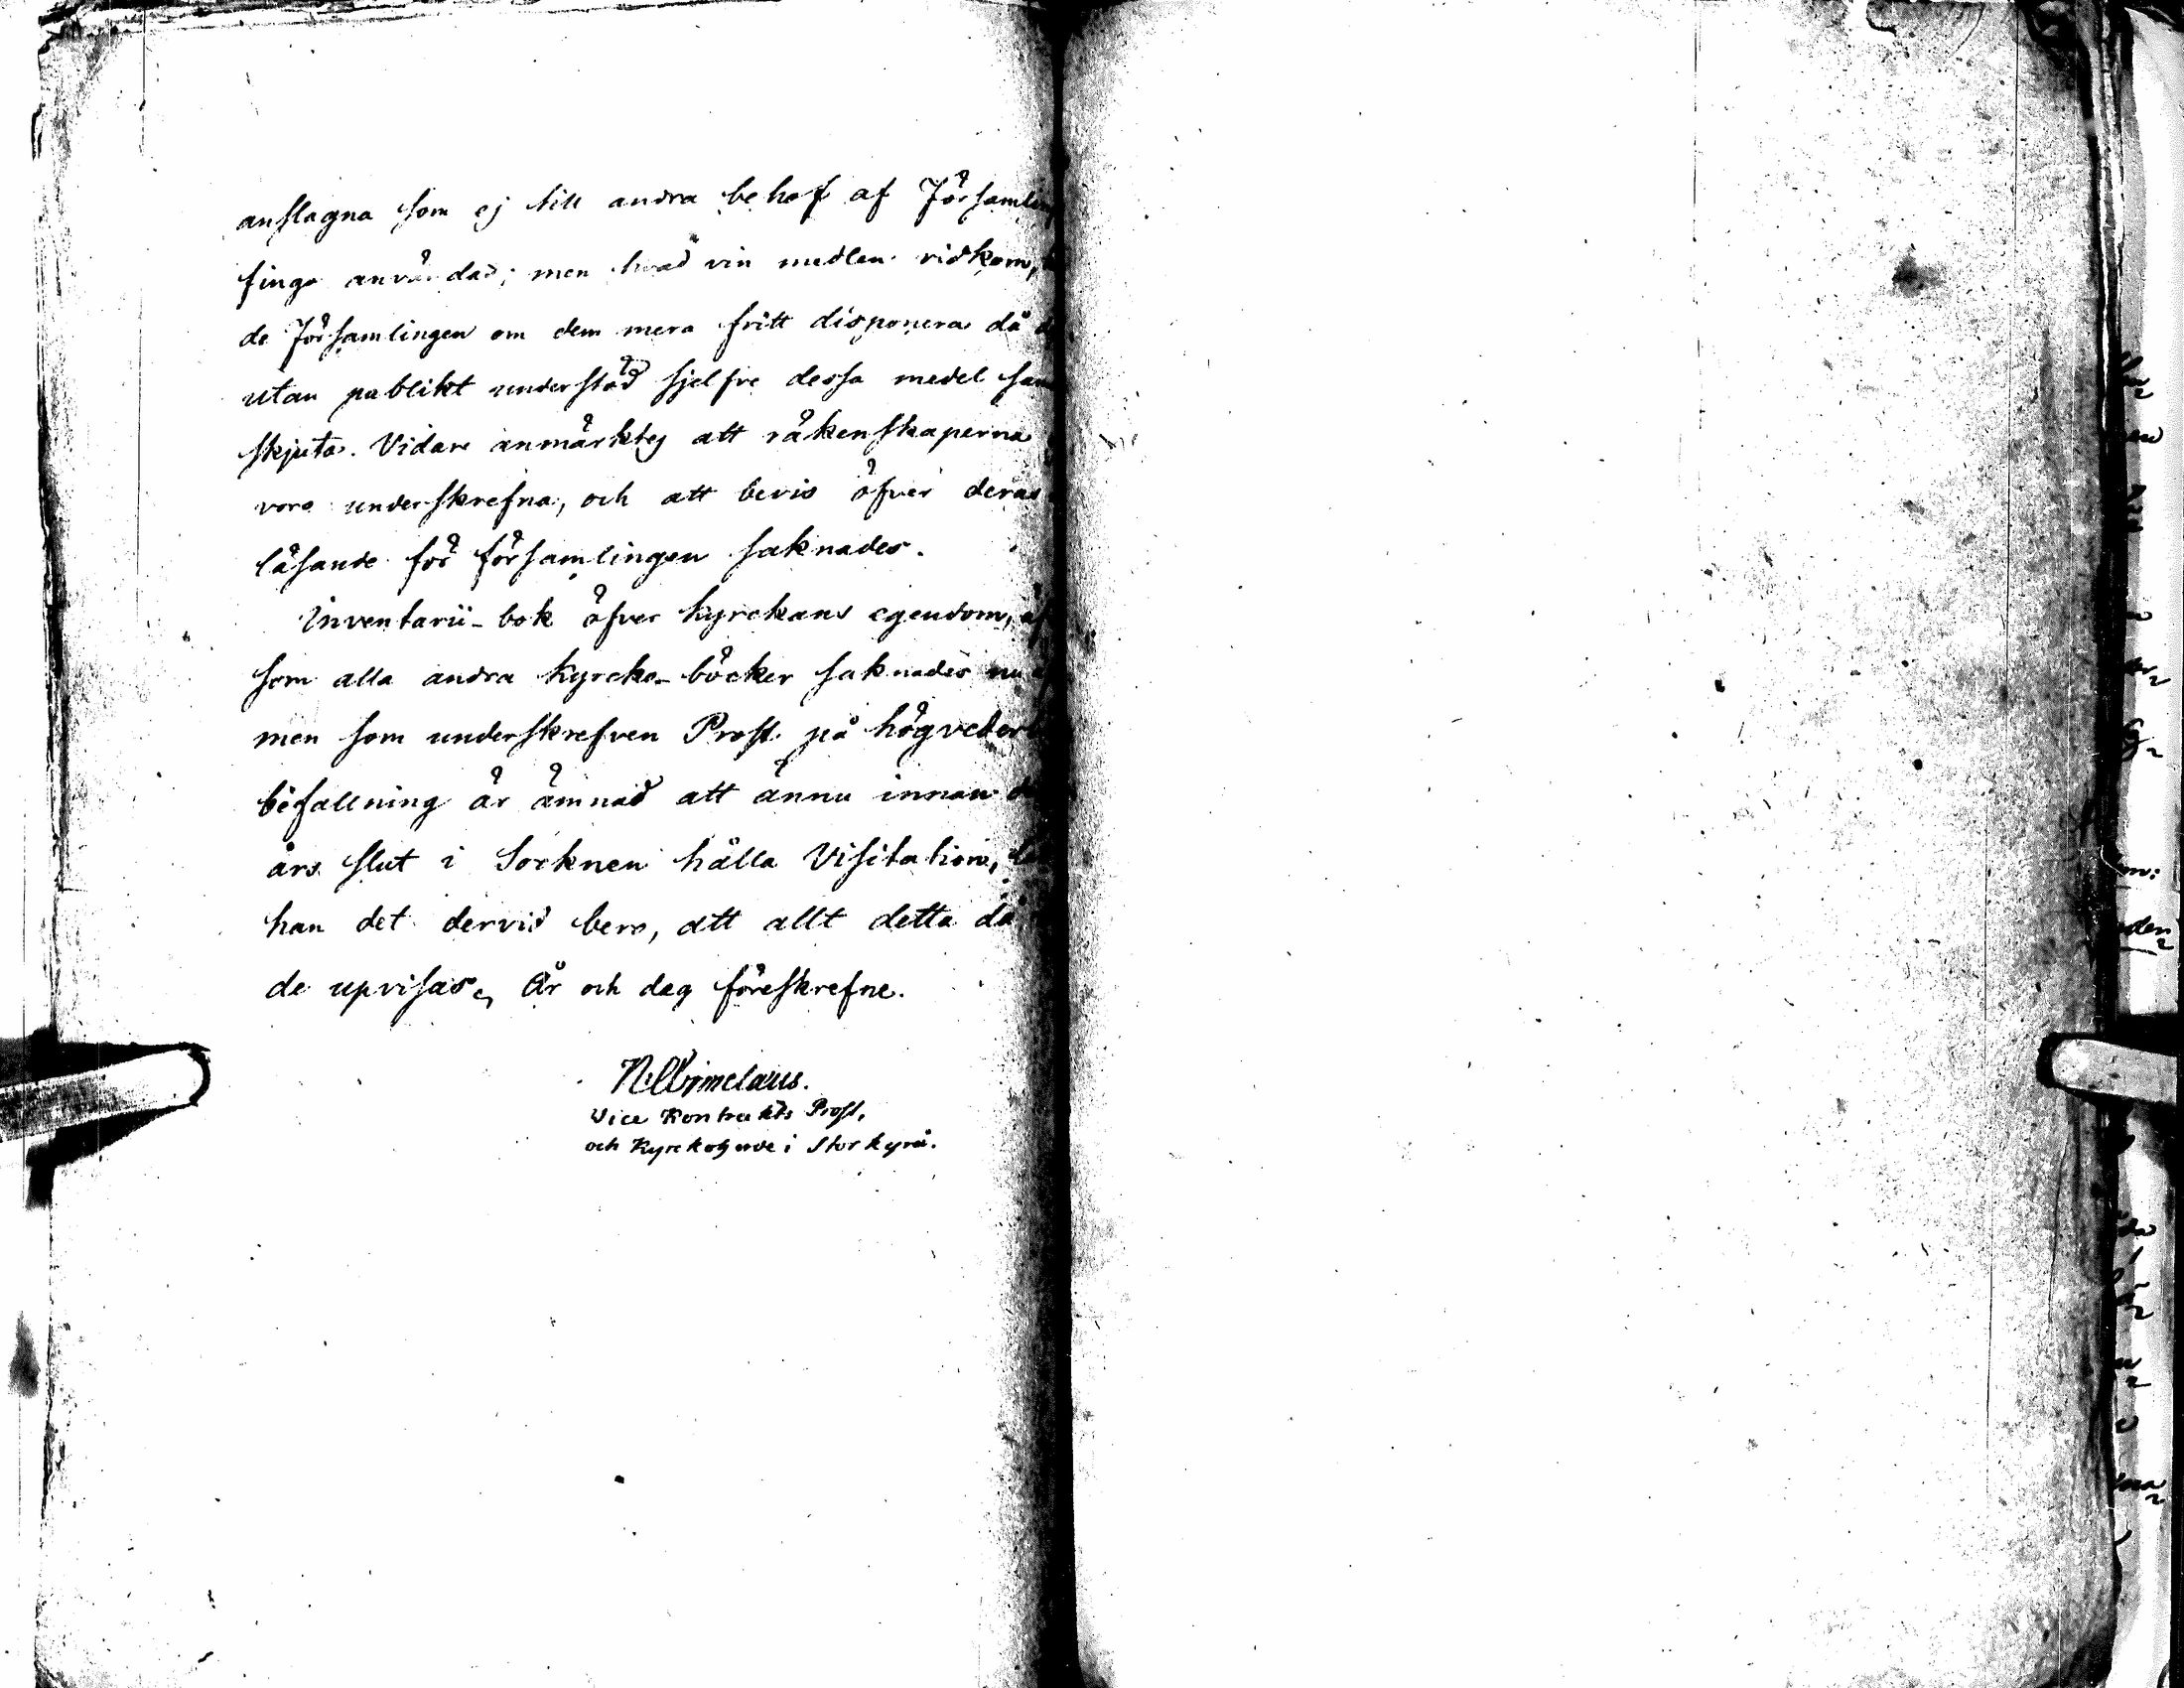 anslagna som ej till andra behof af Församling
finge användas; men hvad vin medlen vidkom,
de Församlingen om dem mera fritt disponera då
utan publikt understöd sjelfve dessa medel sam
skjuta. Vidare anmärktes att räkenskaperna
voro underskrefna, och att bevis öfver deras
läsande för församlingen saknades.
Inventarii-bok öfver kyrckans egendom,
som alla andra kyrcko-böcker saknades nu
men som underskrefven Prost på högveder
befallning är ämnad att ännu innan
års slut i Socknen hålla Visitation,
han det dervid bero, att allt detta då
de upvisas, År och dag föreskrefne.
Vice Kontrakts Prost,
och Kyrckoherde i Storkyrå.